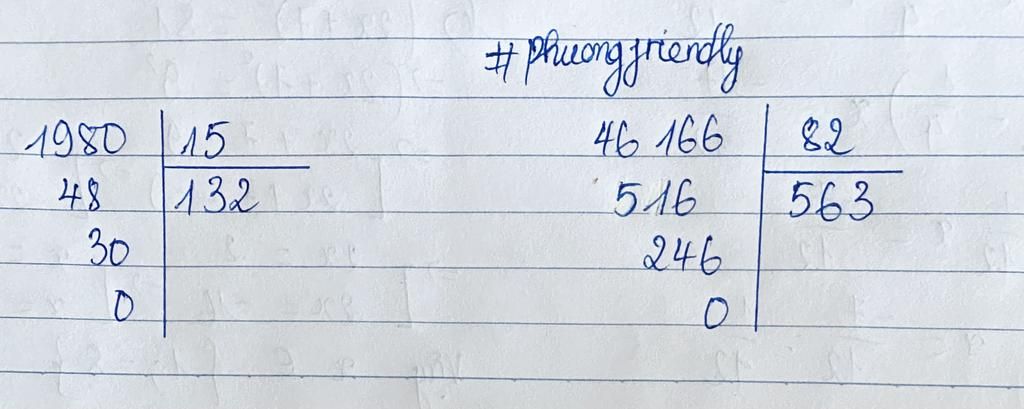 #phuongfriendly
1980 15
48 132
30
0
46 166 82
516 563
246
0